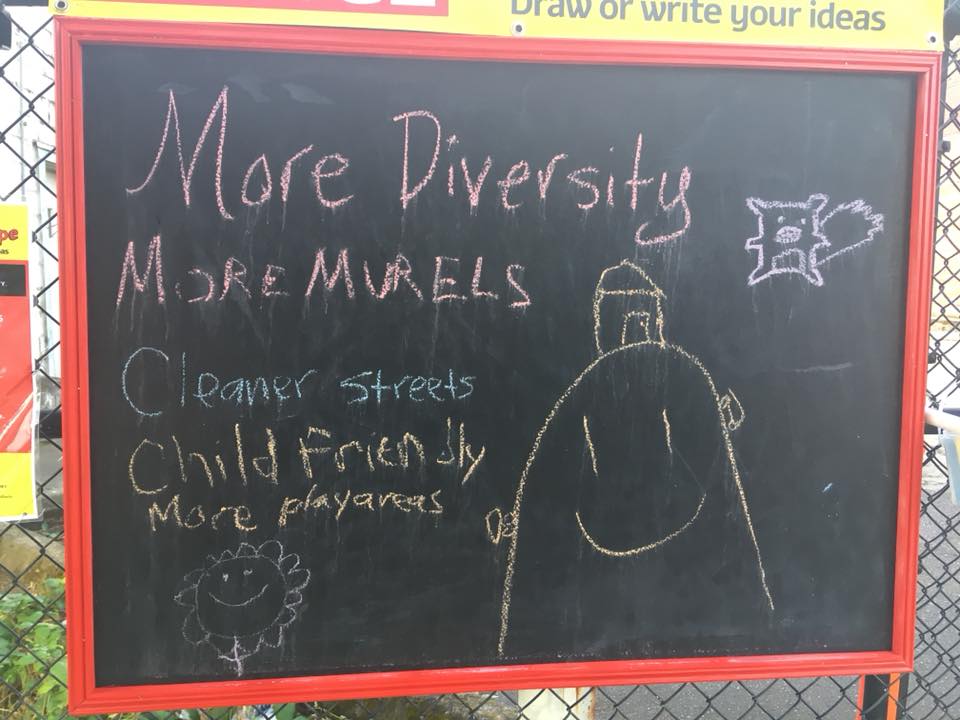 Draw or write your ideas
More Diversity
MORE MURELS
Cleaner streets
Child Friendly
More playareas
pe
as